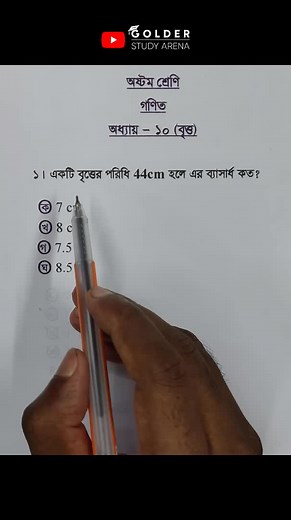 GOLDER
STUDY ARENA
অষ্টম শ্রেণি
গণিত
অধ্যায় – ১০ (বৃত্ত)
১। একটি বৃত্তের পরিধি 44cm হলে এর ব্যাসার্ধ কত?
ক 7
খ 8
গ 7.5
ঘ 8.5